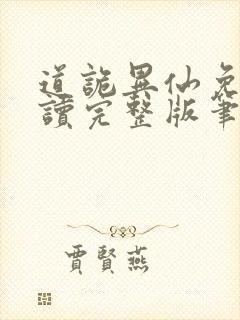 道詭異仙免
讀完整版筆
賈賢燕